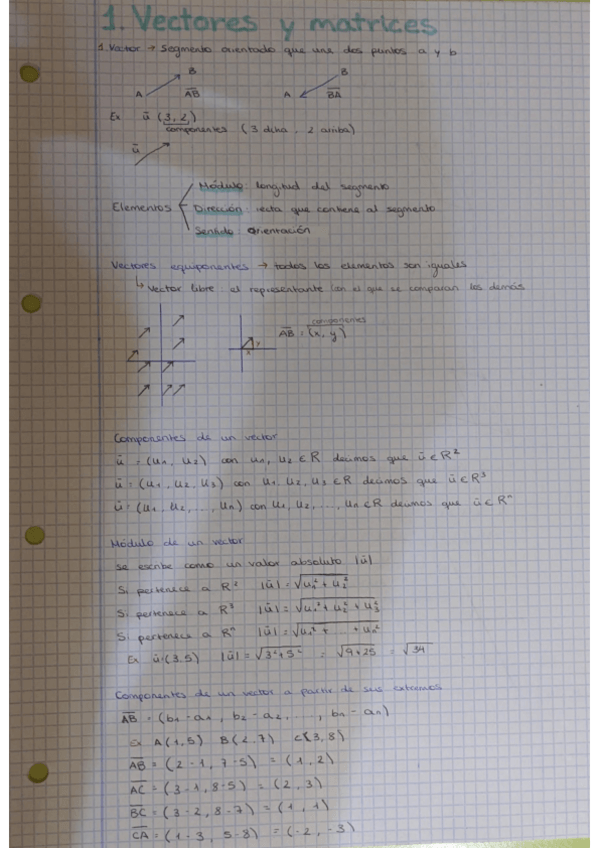 1. Vectores y matrices
1. Vector → Segmento orientado que une dos puntos a y b
B B
A AB A BA
Ex ū (3, 2)
componentes (3 dcha, 2 arriba)
ū
Módulo: longitud del segmento
Elementos Dirección: recta que contiene al segmento
Sentido: orientación
Vectores equiponentes → todos los elementos son iguales
↳ Vector libre: el representante con el que se comparan los demás
componentes
AB = (x, y)
y
x
Componentes de un vector
ū = (u₁, u₂) con u₁, u₂ ∈ R decimos que ū ∈ R²
ū = (u₁, u₂, u₃) con u₁, u₂, u₃ ∈ R decimos que ū ∈ R³
ū = (u₁, u₂, ..., uₙ) con u₁, u₂, ..., uₙ ∈ R decimos que ū ∈ Rⁿ
Módulo de un vector
Se escribe como un valor absoluto |ū|
Si pertenece a R² |ū| = √u₁² + u₂²
Si pertenece a R³ |ū| = √u₁² + u₂² + u₃²
Si pertenece a Rⁿ |ū| = √u₁² + ... + uₙ²
Ex ū (3,5) |ū| = √3² + 5² = √9 + 25 = √34
Componentes de un vector a partir de sus extremos
AB = (b₁ - a₁, b₂ - a₂, ..., bₙ - aₙ)
Ex A(1,5) B(2,7) C(3,8)
AB = (2 - 1, 7 - 5) = (1, 2)
AC = (3 - 1, 8 - 5) = (2, 3)
BC = (3 - 2, 8 - 7) = (1, 1)
CA = (1 - 3, 5 - 8) = (-2, -3)